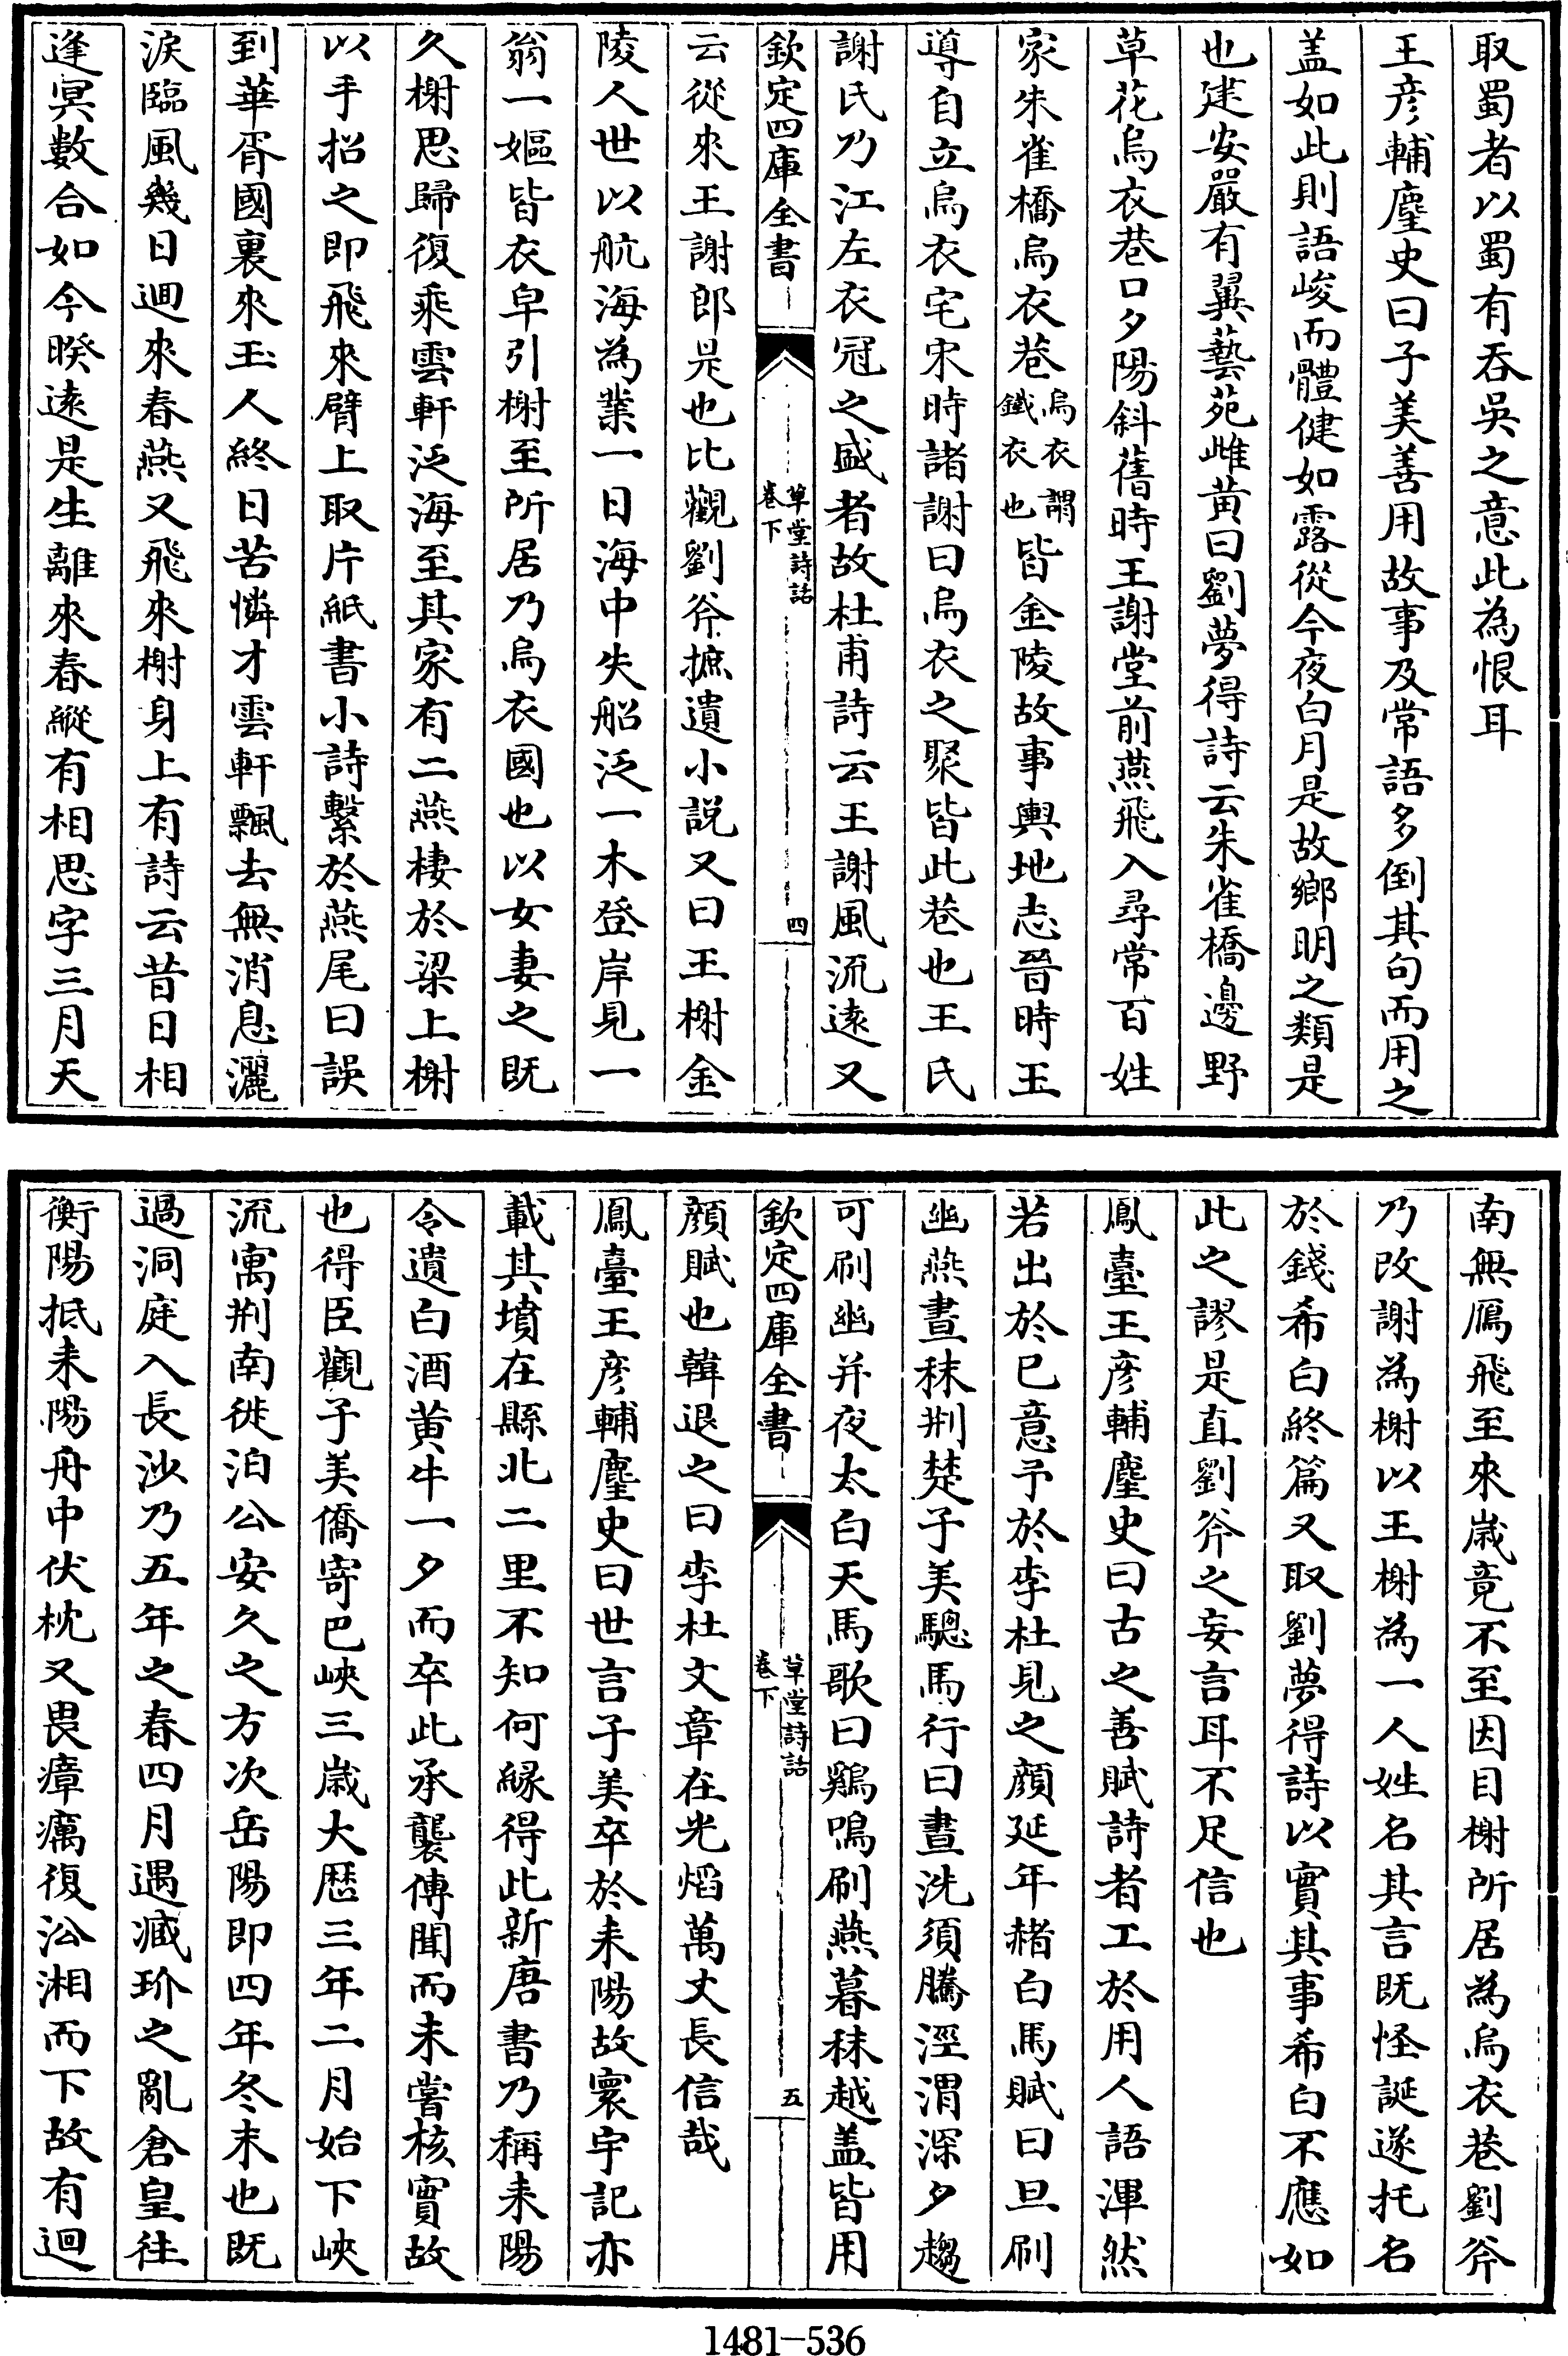 取蜀者以蜀有吞吳之意此為恨耳
王彦輔麈史曰子美善用故事及常語多倒其句而用之
盖如此則語峻而體健如露從今夜白月是故鄉明之類是
也建安嚴有翼藝苑雌黄曰劉夢得詩云朱雀橋邊野
草花烏衣巷口夕陽斜舊時王謝堂前燕飛入尋常百姓
家朱雀橋烏衣巷烏衣謂鐵衣也皆金陵故事輿地志晉時王
導自立烏衣宅宋時諸謝曰烏衣之聚皆此巷也王氏
謝氏乃江左衣冠之盛者故杜甫詩云王謝風流逺又
欽定四庫全書
草堂詩話
卷下
四
云從來王謝郎是也比觀劉斧摭遺小説又曰王榭金
陵人世以航海為業一日海中失船泛一木登岸見一
翁一嫗皆衣皁引榭至所居乃烏衣國也以女妻之既
久榭思歸復乘雲軒泛海至其家有二燕棲於梁上榭
以手招之即飛來臂上取片紙書小詩繫於燕尾曰誤
到華胥國裏來玉人終日苦憐才雲軒飄去無消息灑
淚臨風幾日廻來春燕又飛來榭身上有詩云昔日相
逢冥數合如今暌逺是生離來春縱有相思字三月天
南無鴈飛至來歳竟不至因目榭所居為烏衣巷劉斧
乃改謝為榭以王榭為一人姓名其言既怪誕遂托名
於錢希白終篇又取劉夢得詩以實其事希白不應如
此之謬是直劉斧之妄言耳不足信也
鳳臺王彦輔麈史曰古之善賦詩者工於用人語渾然
若出於已意予於李杜見之顔延年赭白馬賦曰旦刷
幽燕晝秣荆楚子美驄馬行曰晝洗須騰涇渭深夕趨
可刷幽并夜太白天馬歌曰鷄鳴刷燕暮秣越盖皆用
欽定四庫全書
草堂詩話
卷下
五
顔賦也韓退之曰李杜文章在光熖萬丈長信哉
鳳臺王彦輔麈史曰世言子美卒於耒陽故寰宇記亦
載其墳在縣北二里不知何縁得此新唐書乃稱耒陽
令遺白酒黄牛一夕而卒此承襲傳聞而未嘗核實故
也得臣觀子美僑寄巴峽三歳大歴三年二月始下峽
流寓荆南徙泊公安久之方次岳陽即四年冬末也既
過洞庭入長沙乃五年之春四月遇臧玠之亂倉皇往
衡陽抵耒陽舟中伏枕又畏瘴癘復㳂湘而下故有迴
1481-536